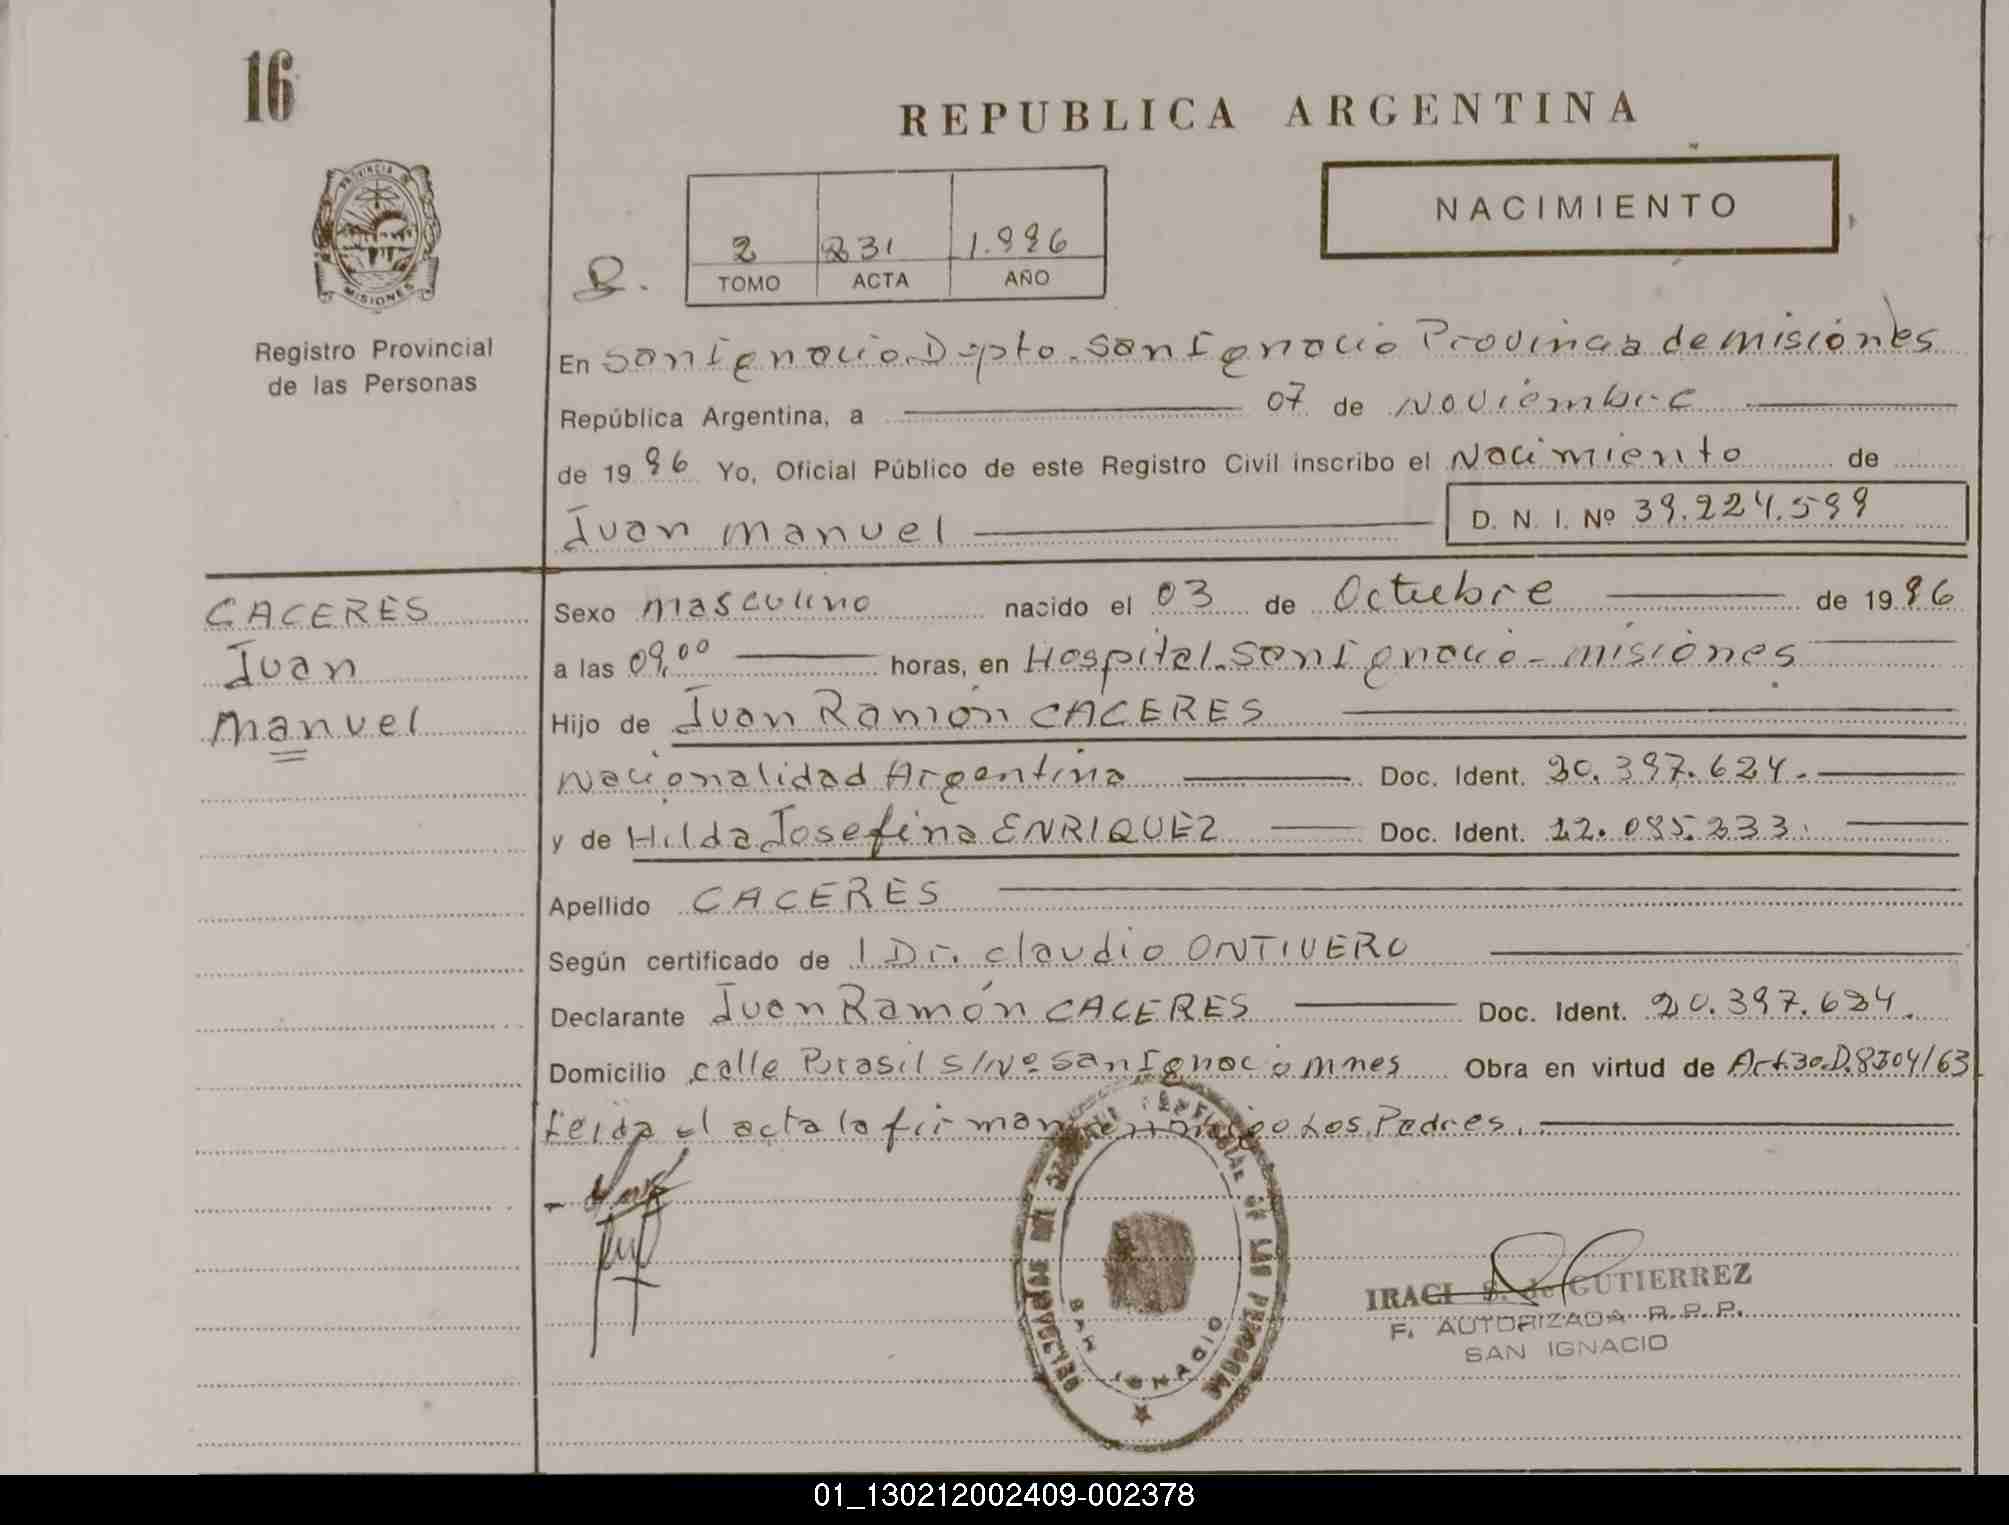 16
REPUBLICA ARGENTINA
PROVINCIA DE
MISIONES
NACIMIENTO
2 231 1.996
TOMO ACTA AÑO
Registro Provincial
de las Personas
En San Ignacio. Dpto. San Ignacio Provincia de misiones
República Argentina, a 07 de Noviembre
de 1996 Yo, Oficial Público de este Registro Civil inscribo el Nacimiento de
Juan manuel D. N. I. Nº 39.224.599
CACERES
Juan
manuel
Sexo masculino nacido el 03 de Octubre de 1996
a las 09,00 horas, en Hospital. San Ignacio - misiones
Hijo de Juan Ramón CACERES
Nacionalidad Argentina Doc. Ident. 20.397.624.
y de Hilda Josefina ENRIQUEZ Doc. Ident. 22.085.233.
Apellido CACERES
Según certificado de l Dr. Claudio ONTIVERO
Declarante Juan Ramón CACERES Doc. Ident. 20.397.624.
Domicilio calle Brasil S/Nº San Ignacio Mnes Obra en virtud de Art.30.D.8204/63
Leida el acta la firman Los Padres.
DE LAS PERSONAS
SAN IGNACIO
IRACI S. de GUTIERREZ
F. AUTORIZADA R. P. P.
SAN IGNACIO
01_130212002409-002378